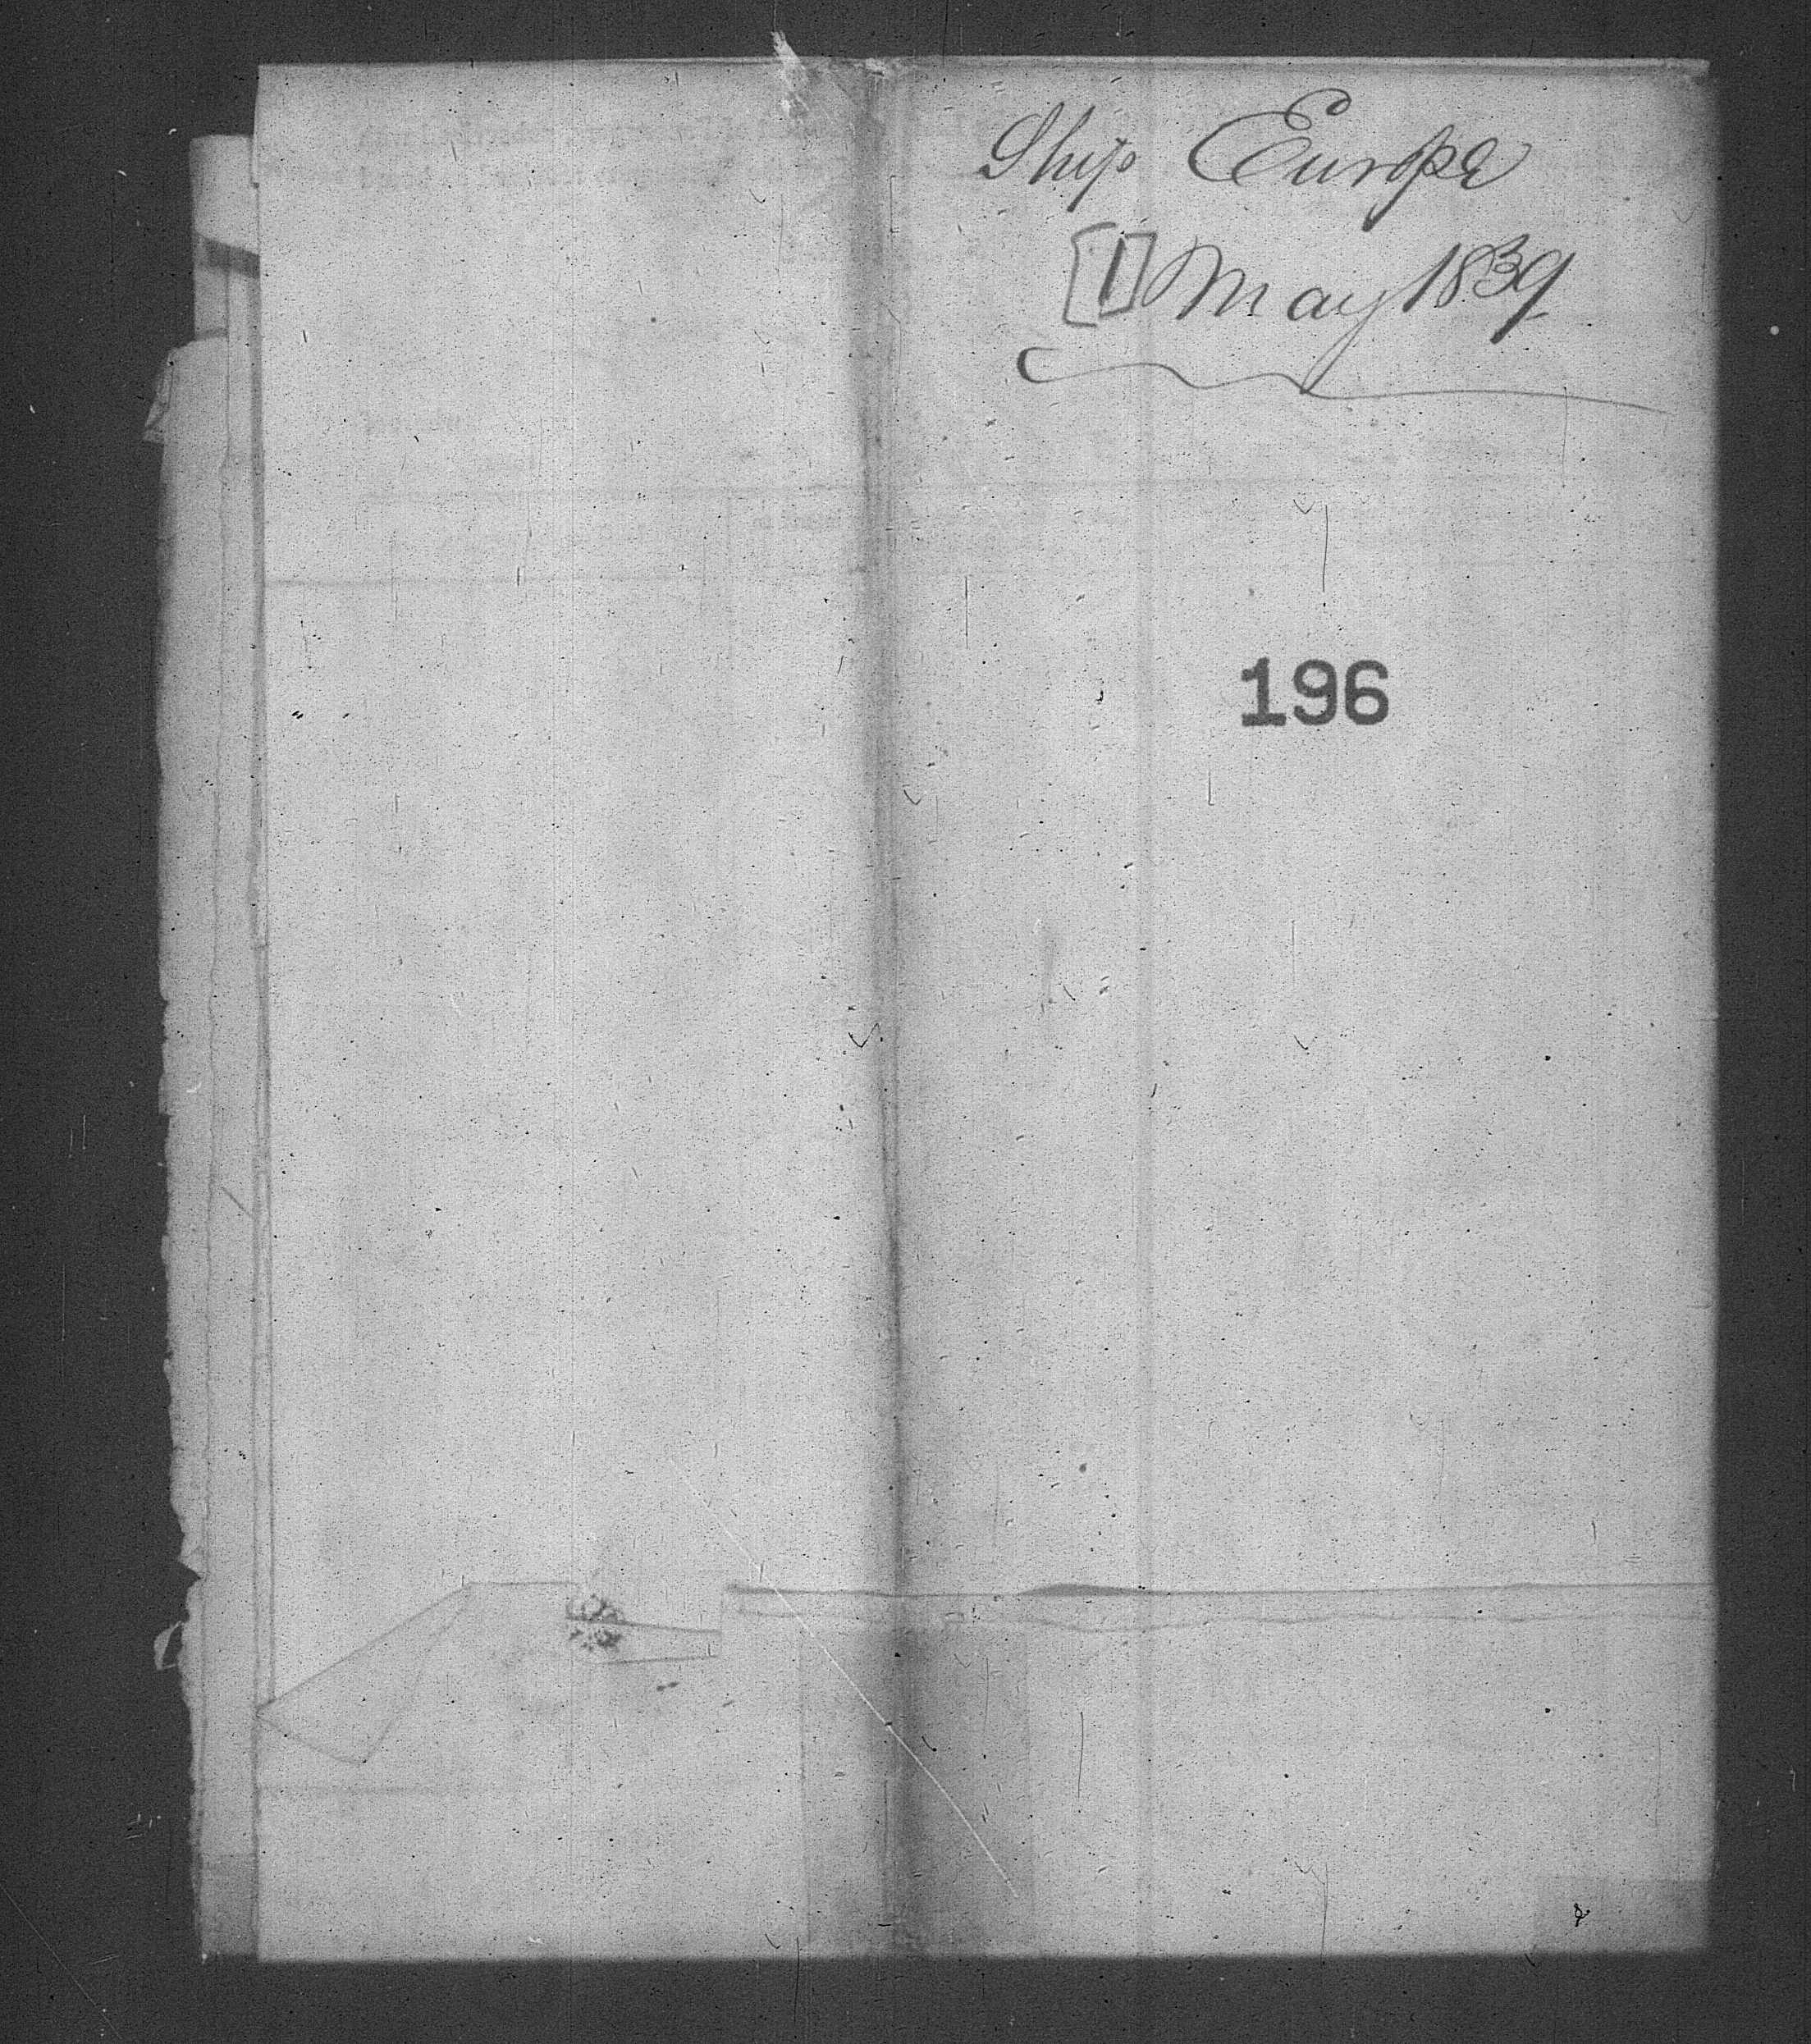 Ship Europe
[1] May 1839
196